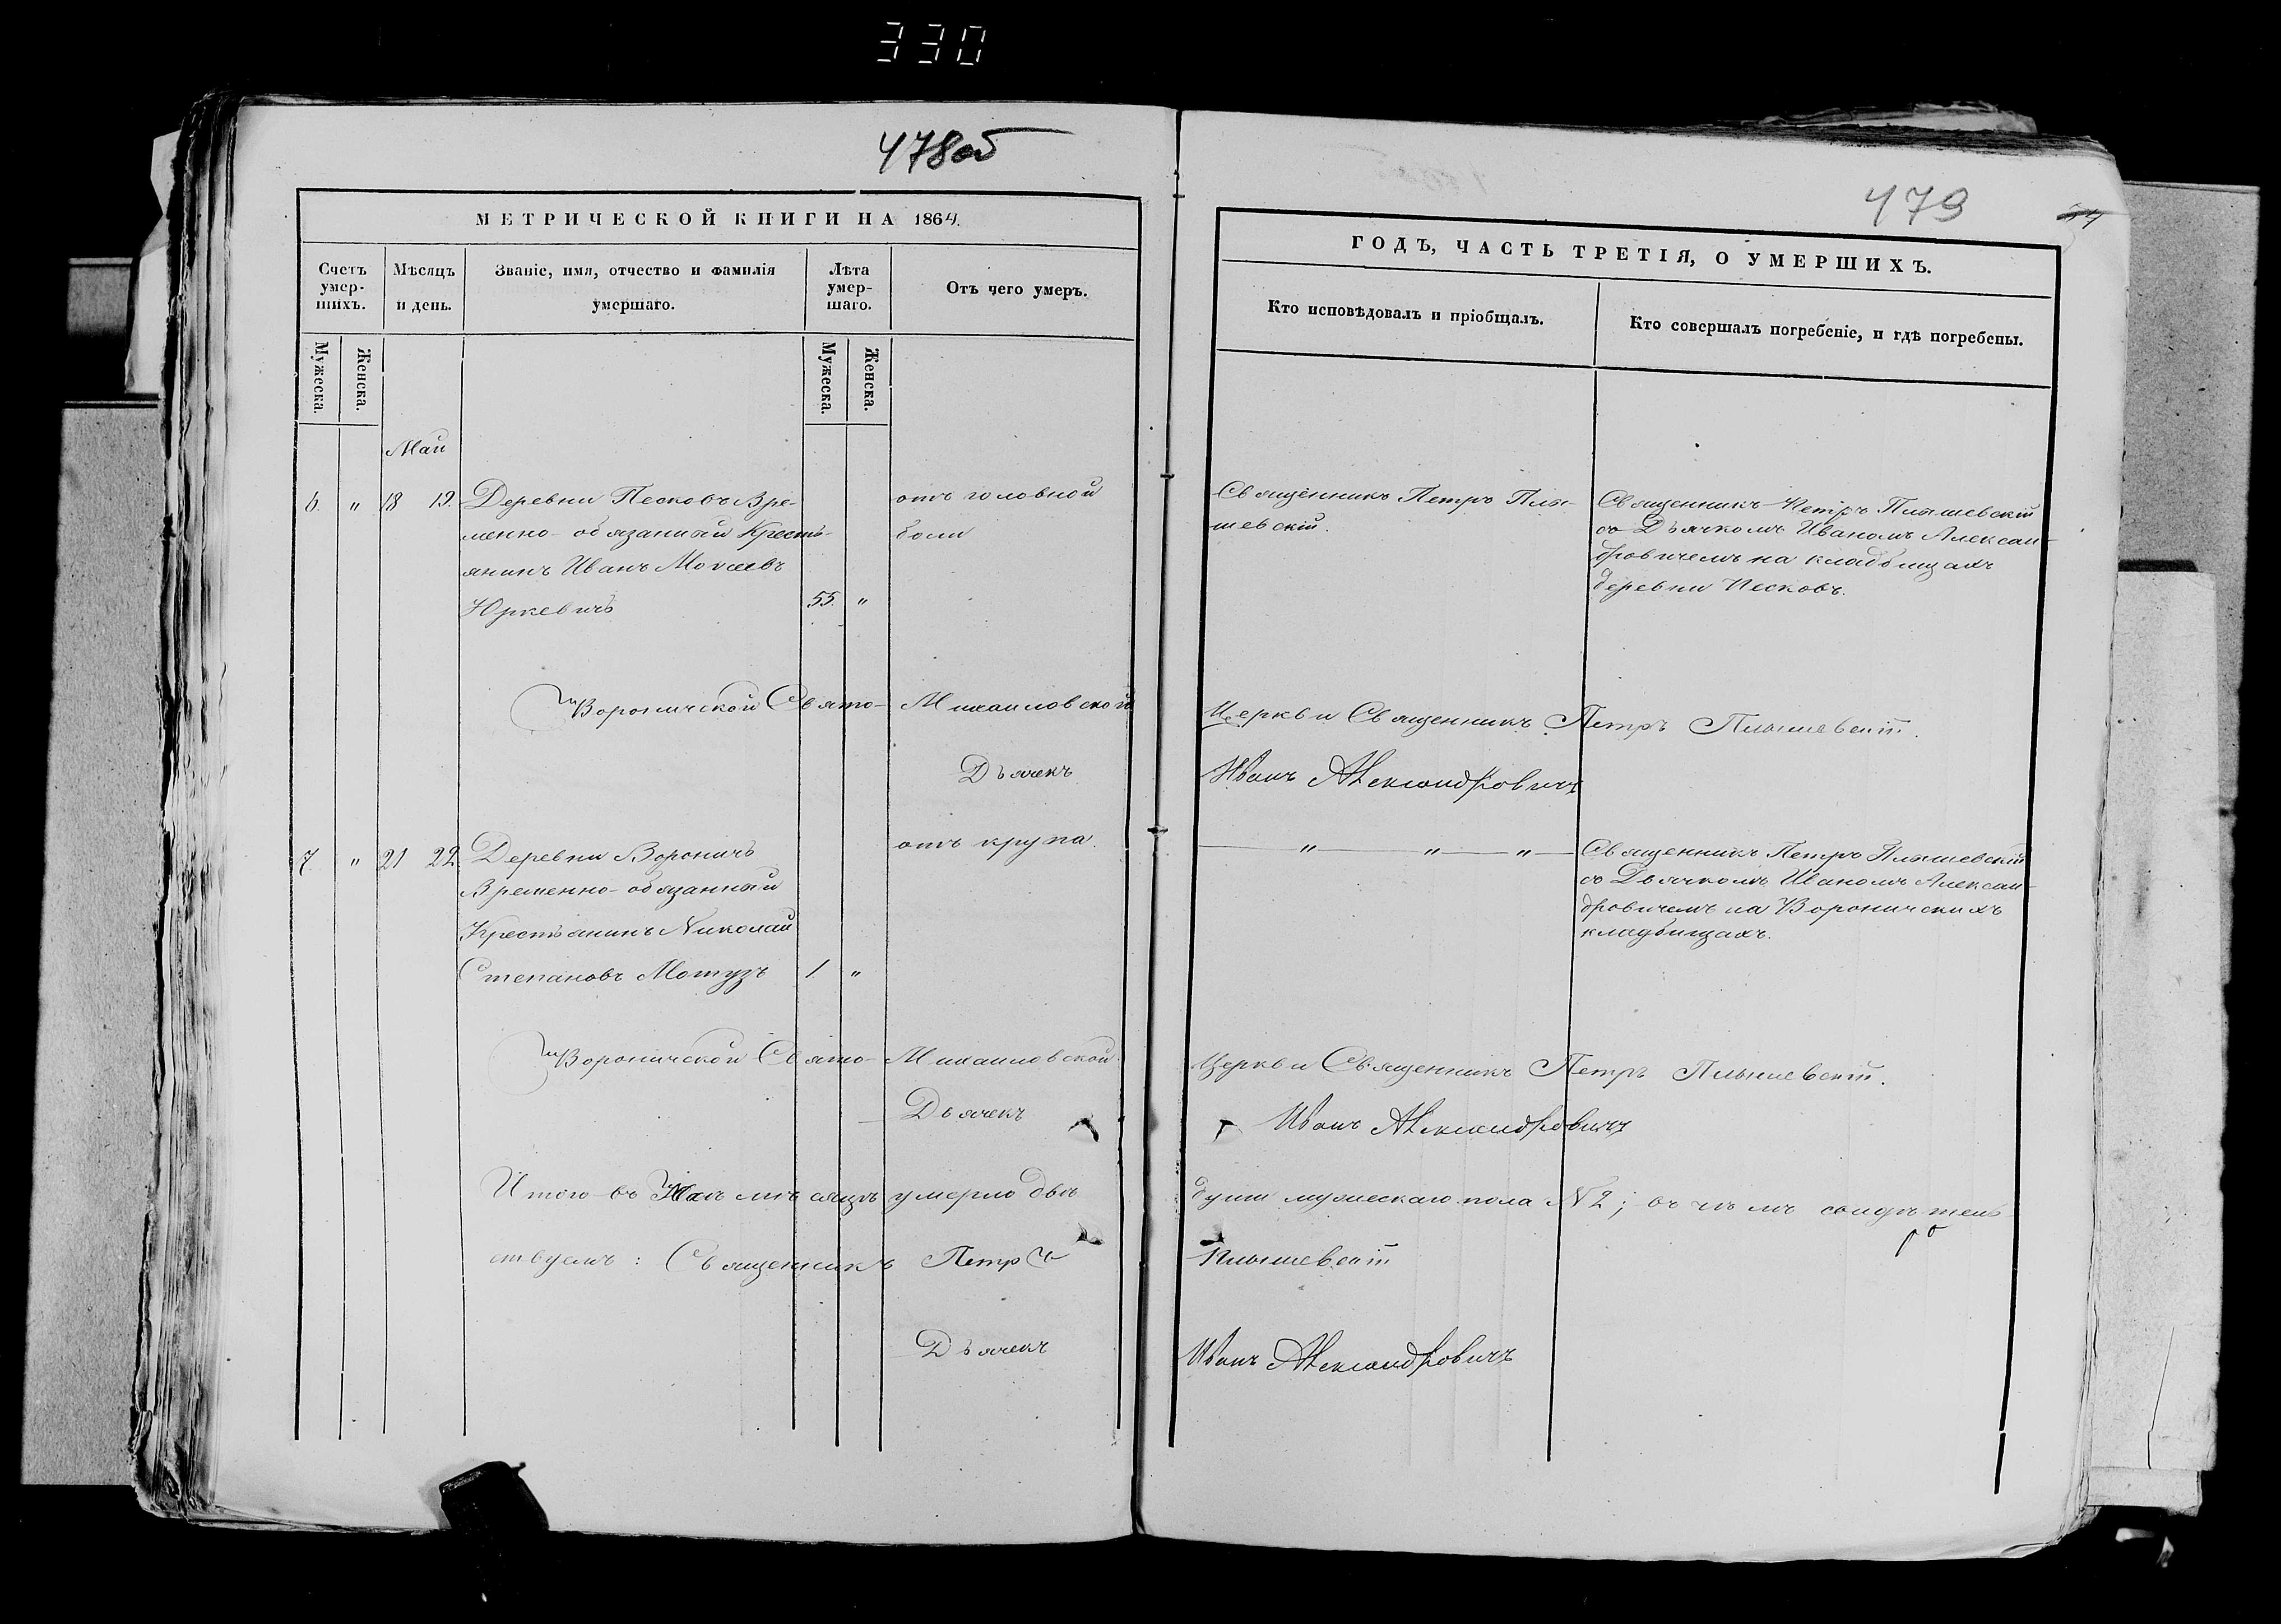 330
478об
479
МЕТРИЧЕСКОЙ КНИГИ НА 1864.
ГОДЪ, ЧАСТЬ ТРЕТІЯ, О УМЕРШИХЪ.
Счетъ умер-шихъ.
Мѣсяцъ и день.
Званіе, имя, отчество и фамилія умершаго.
Лѣта умер-шаго.
Отъ чего умеръ.
Кто исповѣдовалъ и пріобщалъ.
Кто совершалъ погребеніе, и гдѣ погребены.
Мужеска.
Женска.
Мужеска.
Женска.
Май
6. " 18 19. Деревни Песковъ Вре-
менно-обязанный Кресть-
янинъ Иванъ Моисеевъ
Юркевичъ 55. "
отъ головной
боли
Священникъ Петръ Плы-
шевскій.
Священникъ Петръ Плышевскій
съ Дьячкомъ Иваномъ Алексан-
дровичемъ на кладбищахъ
деревни Песковъ.
Вороничской Свято-Михаиловской Церкви Священникъ Петръ Плышевскій.
Дьячекъ Иванъ Александровичъ
7. " 21 22. Деревни Вороничъ
Временно-обязанный
Крестьянинъ Николай
Степановъ Мотузъ 1. "
отъ крупа.
" " "
Священникъ Петръ Плышевскій
съ Дьячкомъ Иваномъ Алексан-
дровичемъ на Вороничскихъ
кладбищахъ.
Вороничской Свято-Михаиловской Церкви Священникъ Петръ Плышевскій.
Дьячекъ Иванъ Александровичъ
Итого въ Маѣ мѣсяцѣ умерло двѣ души мужескаго пола N 2; въ чемъ свидѣтель
ствуемъ: Священникъ Петръ Плышевскій
Дьячекъ Иванъ Александровичъ